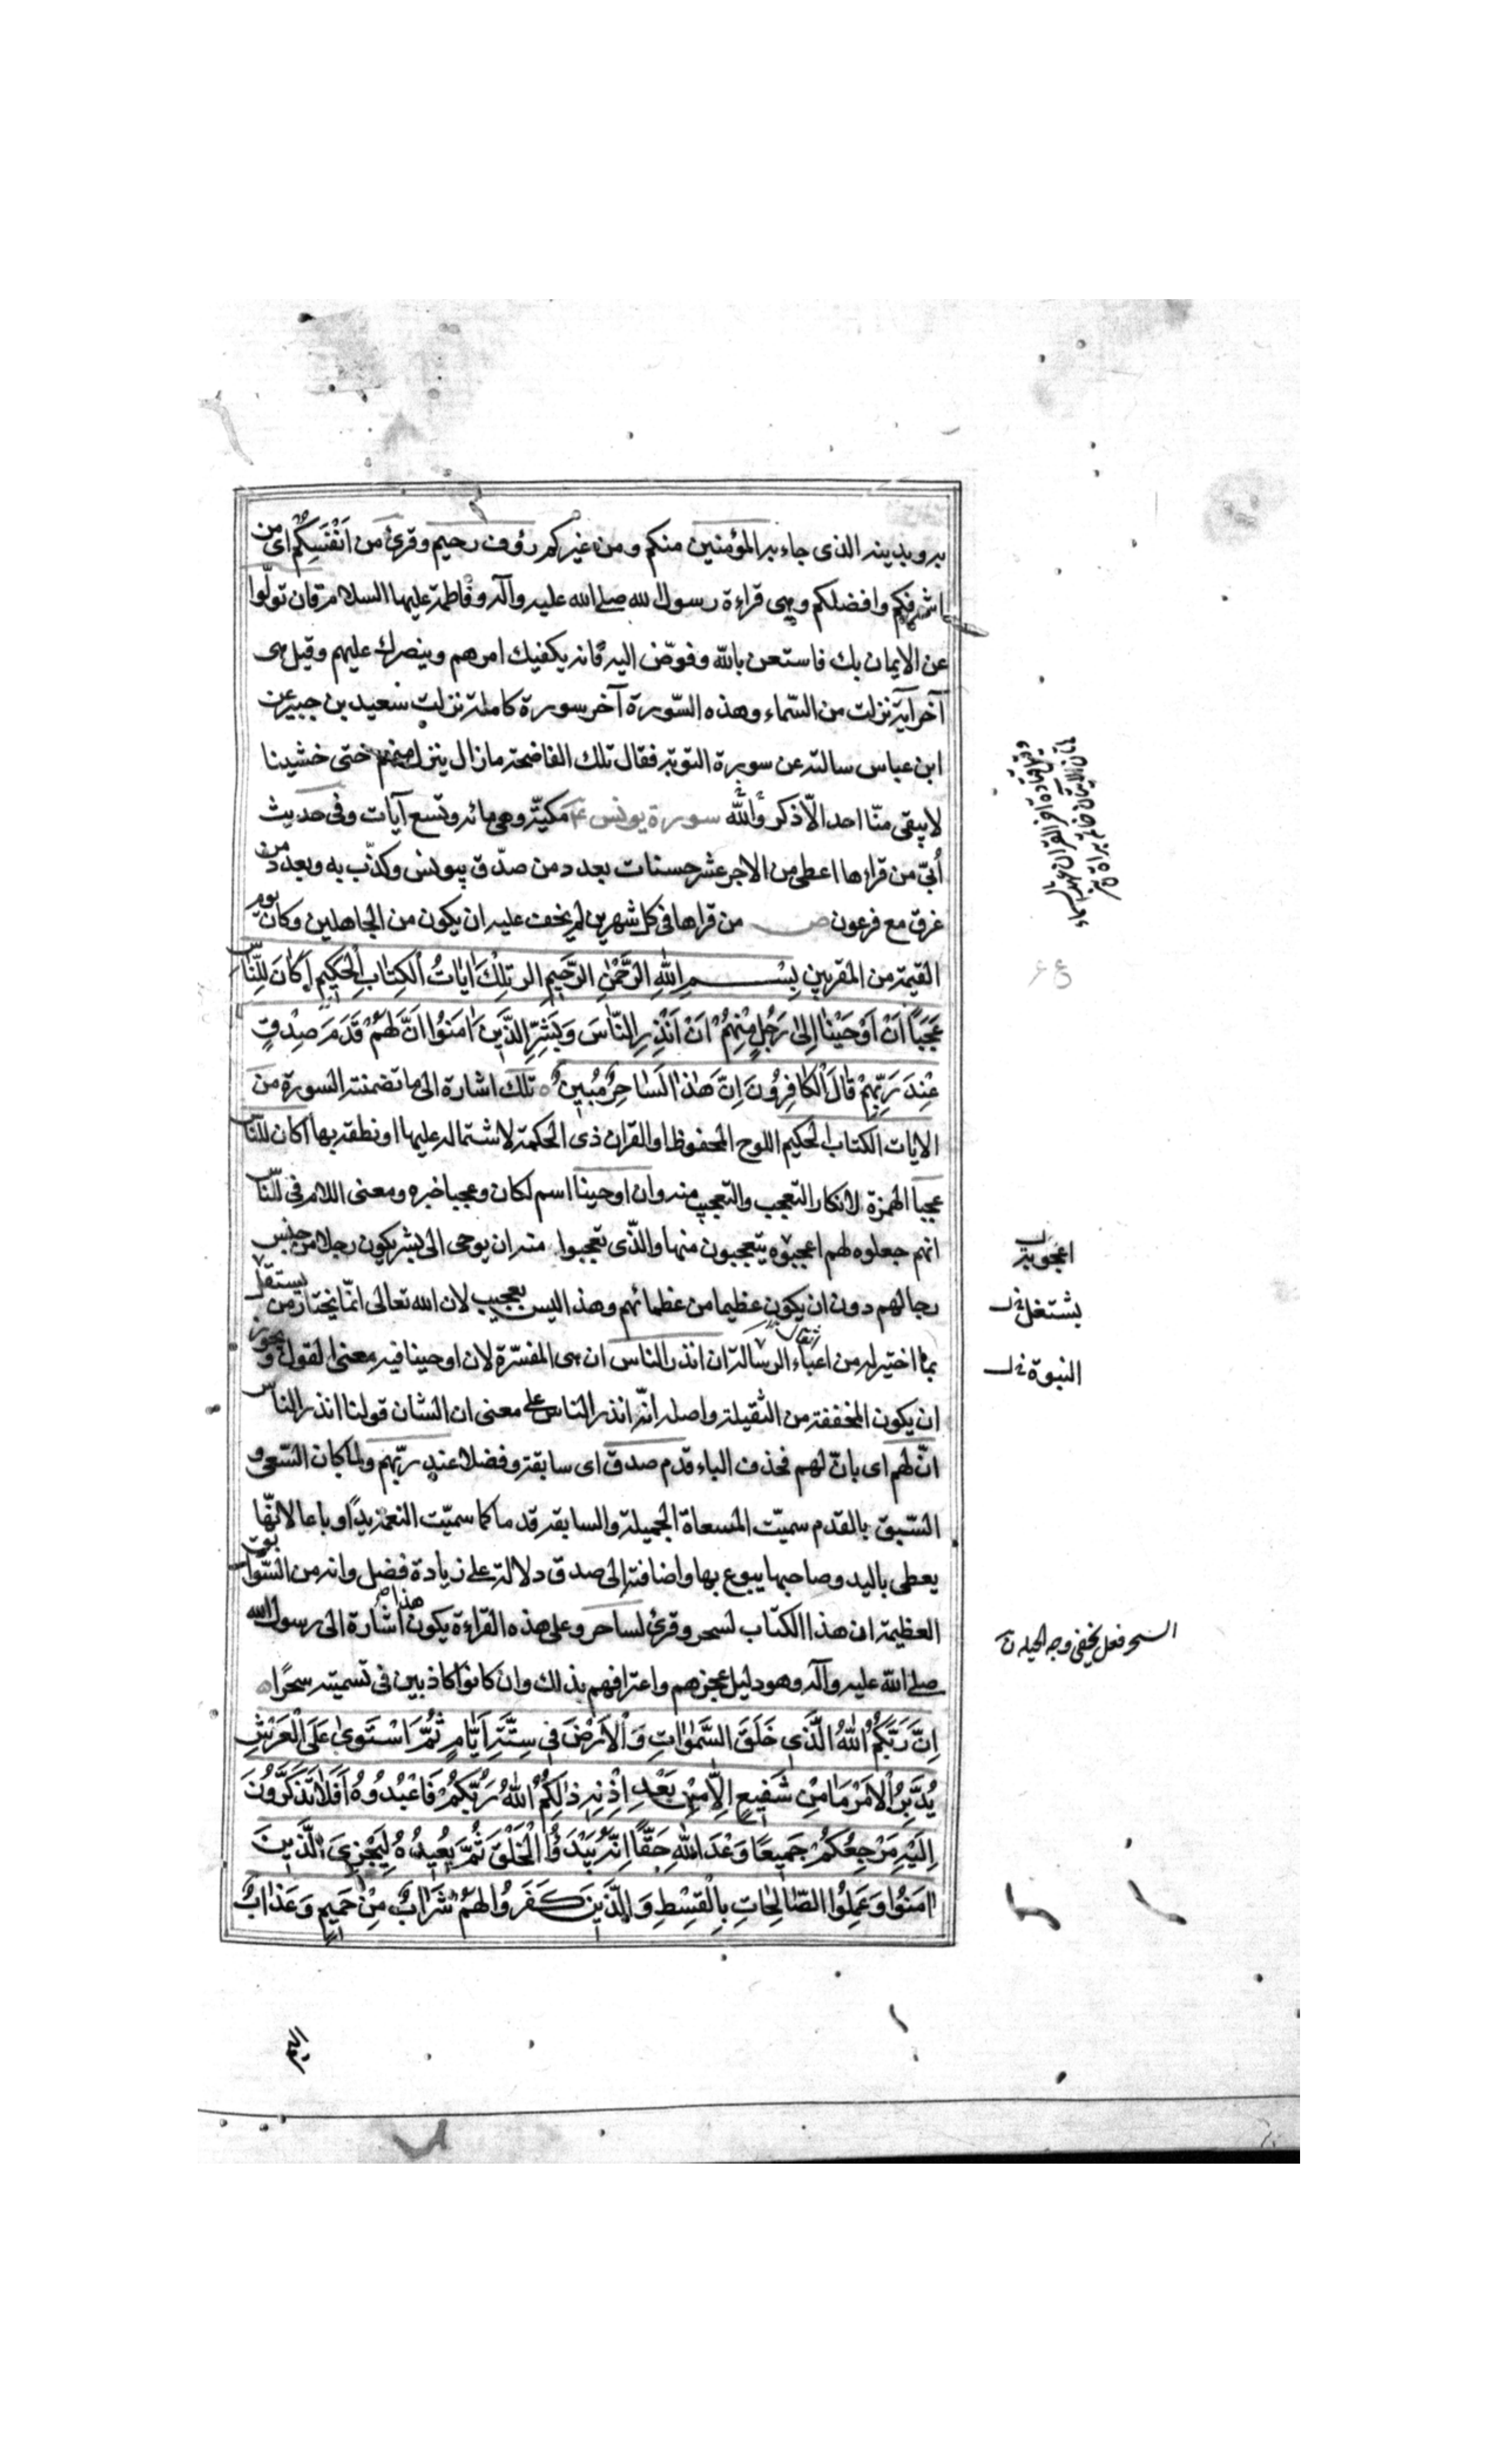 به وبدينه الذى جاء به المؤمنين منكم ومن غيركم رؤوف رحيم وقرئ من اَنْفَسِكُمْ اى من
اشرفكم وافضلكم وهى قراءة رسول الله صلى الله عليه وآله وفاطمة عليها السلام فان تولّوا
عن الايمان بك فاستعن بالله وفوّض اليه فانه يكفيك امرهم وينصرك عليهم وقيل هى
آخر آية نزلت من السّماء وهذه السّورة آخر سورة كاملة نزلت سعيد بن جبير عن
ابن عباس سالته عن سورة التوبة فقال تلك الفاضحة مازال ينزل منهم حتى خشينا
لا يبقى منّا احد الّا ذكر والله سورة يونس مكيّة وهى مائه وتسع آيات وفى حديث
اُبىّ من قراءها اعطى من الاجر عشر حسنات بعدد من صدّق بيونس وكذّب به وبعدد من
غرق مع فرعون ص من قراها فى كل شهرين لم يخف عليه ان يكون من الجاهلين وكان يوم
القيمة من المقربين بِسْمِ اللهِ الرَّحْمٰنِ الرَّحِيمِ الر تِلْكَ اٰيَاتُ الْكِتٰابِ الْحَكِيمِ اَكَانَ لِلنَّاسِ
عَجَبًا اَنْ اَوْحَيْنٰا اِلىٰ رَجُلٍ مِنْهُمْ اَنْ اَنْذِرِ النّٰاسَ وَبَشِّرِ الَّذِينَ اٰمَنُوا اَنَّ لَهُمْ قَدَمَ صِدْقٍ
عِنْدَ رَبِّهِمْ قٰالَ الْكٰافِرُونَ اِنَّ هٰذٰا لَسٰاحِرٌ مُبِينٌ تلك اشارة الى ما تضمنته السورة من
الايات الكتاب الحكيم اللوح المحفوظ او القران ذى الحكمة لاشتماله عليها او نطقه بها اكان للنّاس
عجبا الهمزة لانكار التعجب والتعجيب منه وان اوحينا اسم لكان وعجبا خبره ومعنى اللام فى للنّاس
انهم جعلوه لهم اعجوبه يتعجبون منها والذّى تعجبوا منه ان يوحى الى بشر يكون رجلا من جنس
رجالهم دون ان يكون عظيما من عظمائهم وهذا ليس بعجيب لان الله تعالى انمّا يختار من يستقل
بما اختير له من اعباء الرسالة ان انذر الناس ان هى المفسّرة لان اوحينا فيه معنى القول ويجوز
ان يكون المخففة من الثقيلة واصله انّه انذر الناس على معنى ان الشان قولنا انذر الناس
انّ لهم اى بانّ لهم فحذف الباء قدم صدق اى سابقة وفضلا عند ربّهم ولما كان السّعى و
السّبق بالقدم سميّت المسعاة الجميلة والسابقة قدما كما سميّت النعمة يدًا وباعا لانّها
يعطى باليد وصاحبها يبوع بها واضافته الى صدق دلالة على زيادة فضل وانه من السّوابق
العظيمة ان هذا الكتاب لسحر وقرئ لساحر وعلى هذه القراءة يكون هذا اشارة الى رسول الله
صلى الله عليه وآله وهو دليل عجزهم واعترافهم بذلك وان كانوا كاذبين فى تسميته سحرًا
اِنَّ رَبَّكُمُ اللهُ الَّذِى خَلَقَ السَّمٰوٰاتِ وَالْاَرْضَ فِى سِتَّةِ اَيّٰامٍ ثُمَّ اسْتَوىٰ عَلَى الْعَرْشِ
يُدَبِّرُ الْاَمْرَ مٰا مِنْ شَفِيعٍ اِلّٰا مِنْ بَعْدِ اِذْنِهِ ذٰلِكُمُ اللهُ رَبُّكُمْ فَاعْبُدُوهُ اَفَلٰا تَذَكَّرُونَ
اِلَيْهِ مَرْجِعُكُمْ جَمِيعًا وَعْدَ اللهِ حَقًّا اِنَّهُ يَبْدَؤُا الْخَلْقَ ثُمَّ يُعِيدُهُ لِيَجْزِىَ الَّذِينَ
اٰمَنُوا وَعَمِلُوا الصّٰالِحٰاتِ بِالْقِسْطِ وَالَّذِينَ كَفَرُوا لَهُمْ شَرٰابٌ مِنْ حَمِيمٍ وَعَذٰابٌ
اعجوبة
يشتغل
النبوة
السحر فعل يخفى وجه الحيلة
اليم